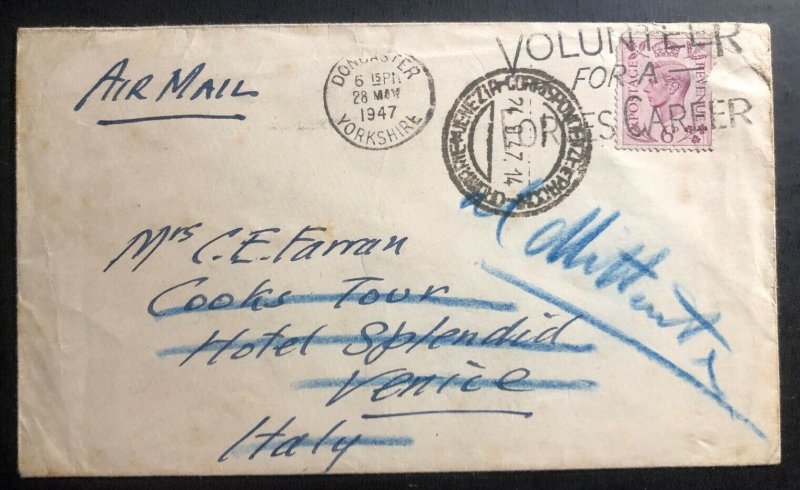 AIR MAIL
DONCASTER
6 15 PM
28 MAY
1947
YORKSHIRE
VOLUNTEER
FOR A
FORCES CAREER
POSTAGE
REVENUE
6D
VENEZIA-CORRISPONDENZE E PACCHI
al Mittente
Mrs C.E. Farran
Cooks Tour
Hotel Splendid
Venice
Italy